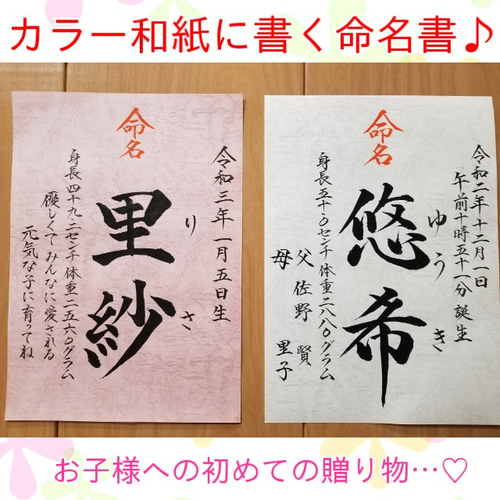 カラー和紙に書く命名書♪
命名
令和三年一月五日生
里紗
りさ
身長四十九.二センチ 体重二五六〇グラム
優しくてみんなに愛される
元気な子に育ってね
命名
令和二年十二月一日
午前十時五十一分 誕生
悠希
ゆうき
身長五十.〇センチ 体重二八八〇グラム
父 佐野 賢
母 里子
お子様への初めての贈り物…♡